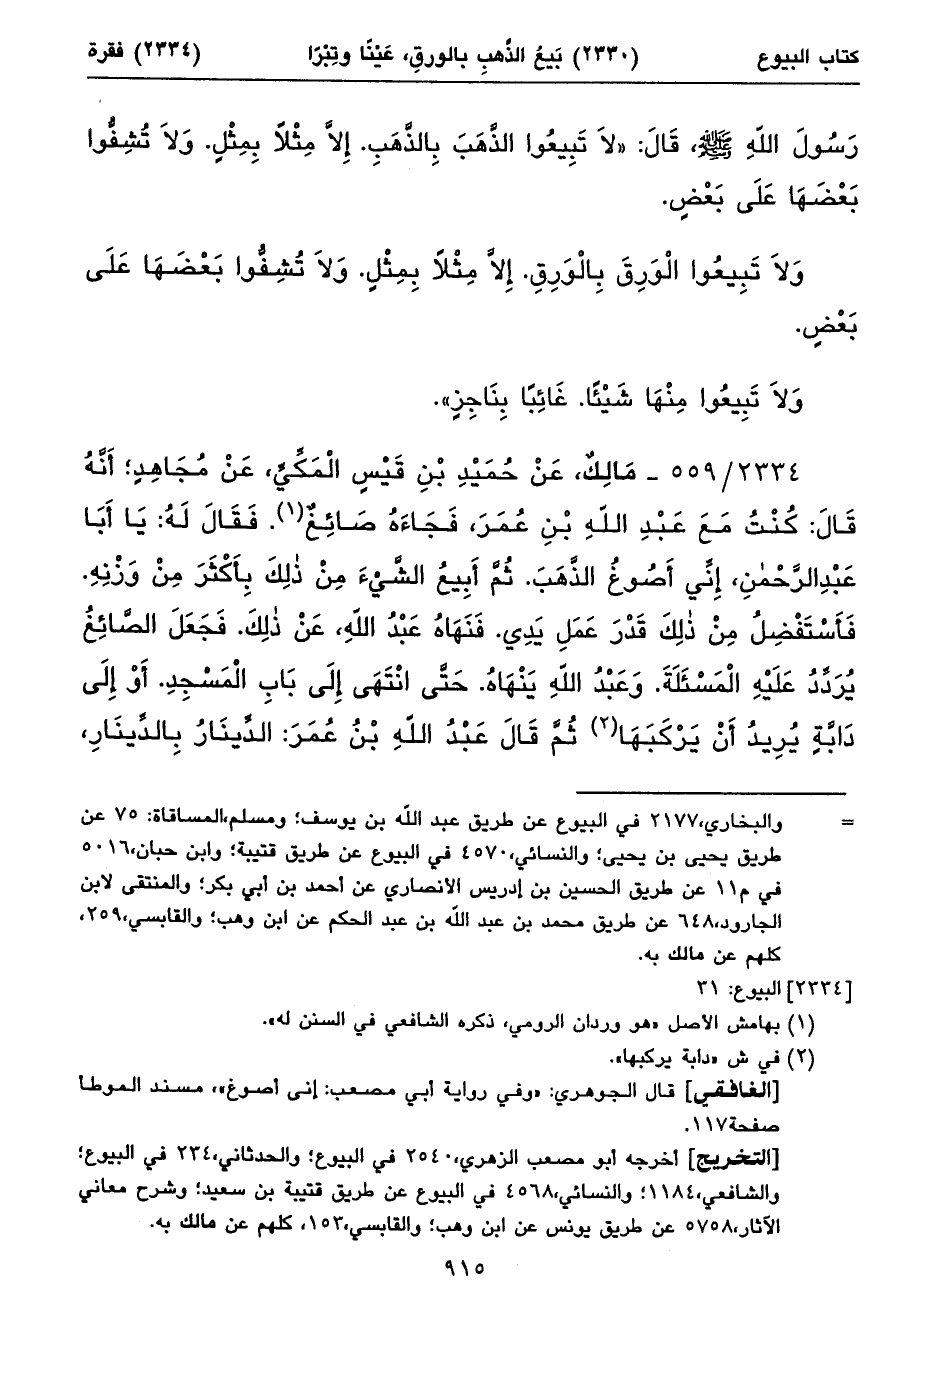 كتاب البيوع (٢٣٣٠) بَيعُ الذَّهبِ بالورقِ، عَيْنًا وتِبْرًا (٢٣٣٤) فقرة
رَسُولَ اللّهِ ﷺ، قَالَ: «لاَ تَبِيعُوا الذَّهَبَ بِالذَّهَبِ. إِلاَّ مِثْلاً بِمِثْلٍ. وَلاَ تُشِفُّوا
بَعْضَهَا عَلَى بَعْضٍ.
وَلاَ تَبِيعُوا الْوَرِقَ بِالْوَرِقِ. إِلاَّ مِثْلاً بِمِثْلٍ. وَلاَ تُشِفُّوا بَعْضَهَا عَلَى
بَعْضٍ.
وَلاَ تَبِيعُوا مِنْهَا شَيْئًا. غَائِبًا بِنَاجِزٍ».
٥٥٩/٢٣٣٤ - مَالِكٌ، عَنْ حُمَيْدِ بْنِ قَيْسٍ الْمَكِّيِّ، عَنْ مُجَاهِدٍ؛ أَنَّهُ
قَالَ: كُنْتُ مَعَ عَبْدِ اللّهِ بْنِ عُمَرَ، فَجَاءَهُ صَائِغٌ(١). فَقَالَ لَهُ: يَا أَبَا
عَبْدِالرَّحْمٰنِ، إِنِّي أَصُوغُ الذَّهَبَ. ثُمَّ أَبِيعُ الشَّيْءَ مِنْ ذٰلِكَ بِأَكْثَرَ مِنْ وَزْنِهِ.
فَأَسْتَفْضِلُ مِنْ ذٰلِكَ قَدْرَ عَمَلِ يَدِي. فَنَهَاهُ عَبْدُ اللّهِ، عَنْ ذٰلِكَ. فَجَعَلَ الصَّائِغُ
يُرَدِّدُ عَلَيْهِ الْمَسْئَلَةَ. وَعَبْدُ اللّهِ يَنْهَاهُ. حَتَّى انْتَهَى إِلَى بَابِ الْمَسْجِدِ. أَوْ إِلَى
دَابَّةٍ يُرِيدُ أَنْ يَرْكَبَهَا(٢) ثُمَّ قَالَ عَبْدُ اللّهِ بْنُ عُمَرَ: الدِّينَارُ بِالدِّينَارِ،
= والبخاري،٢١٧٧ في البيوع عن طريق عبد اللّه بن يوسف؛ ومسلم،المساقاة: ٧٥ عن
طريق يحيى بن يحيى؛ والنسائي،٤٥٧٠ في البيوع عن طريق قتيبة؛ وابن حبان،٥٠١٦
في م١١ عن طريق الحسين بن إدريس الانصاري عن أحمد بن أبي بكر؛ والمنتقى لابن
الجارود،٦٤٨ عن طريق محمد بن عبد اللّه بن عبد الحكم عن ابن وهب؛ والقابسي،٢٥٩،
كلهم عن مالك به.
[٢٣٣٤] البيوع: ٣١
(١) بهامش الاصل «هو وردان الرومي، ذكره الشافعي في السنن له».
(٢) في ش «دابة يركبها».
[الغافقي] قال الجوهري: «وفي رواية أبي مصعب: إنى أصوغ»، مسند الموطا
صفحة١١٧.
[التخريج] أخرجه أبو مصعب الزهري،٢٥٤٠ في البيوع؛ والحدثاني،٢٣٤ في البيوع؛
والشافعي،١١٨٤؛ والنسائي،٤٥٦٨ في البيوع عن طريق قتيبة بن سعيد؛ وشرح معاني
الآثار،٥٧٥٨ عن طريق يونس عن ابن وهب؛ والقابسي،١٥٣، كلهم عن مالك به.
٩١٥